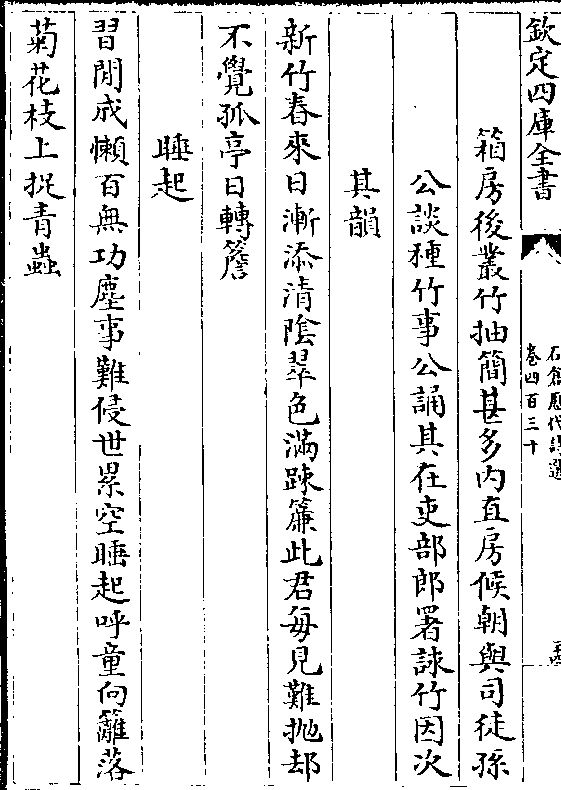 欽定四庫全書
石倉歷代詩選
卷四百三十
箱房後叢竹抽簡甚多內直房候朝與司徒孫
公談種竹事公誦其在吏部郎署詠竹因次
其韻
新竹春來日漸添清陰翠色滿踈簾此君每見難拋却
不覺孤亭日轉簷
睡起
習閒成懶百無功塵事難侵世累空睡起呼童向籬落
菊花枝上捉青蟲